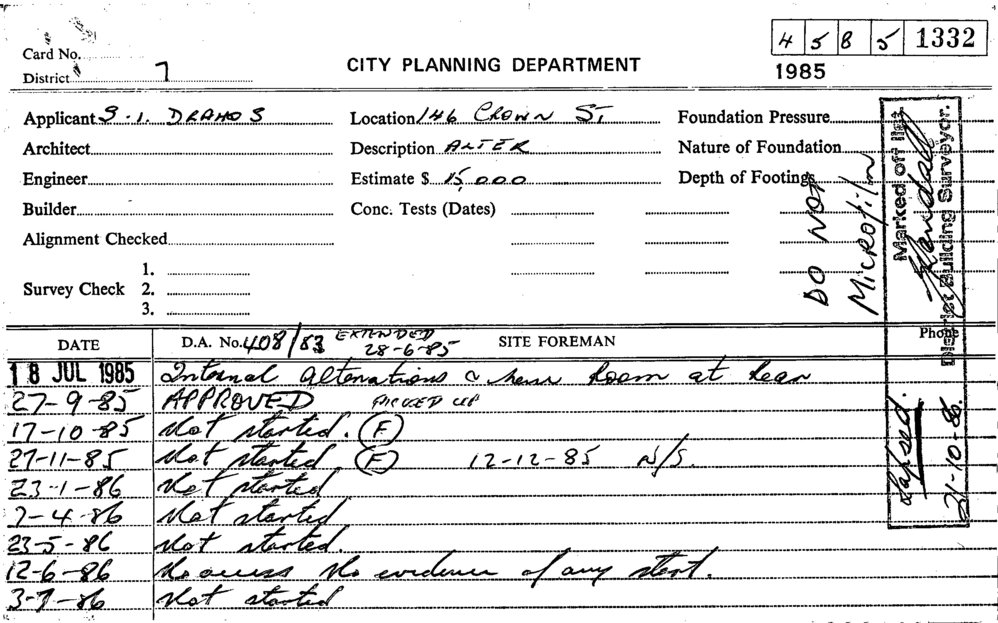 4 5 8 5 1332
Card No.
District 7
CITY PLANNING DEPARTMENT
1985
Applicant S.I. DRAHOS Location 146 CROWN ST Foundation Pressure
Architect Description ALTER Nature of Foundation
Engineer Estimate $ 15,000 Depth of Footings
Builder Conc. Tests (Dates)
Alignment Checked
1.
Survey Check 2.
3.
DO NOT
MICROFILM
Marked off list
District Building Surveyor.
Lapsed.
21-10-86.
DATE D.A. No. 408/83 EXTENDED 28-6-85 SITE FOREMAN Phone
18 JUL 1985 Internal alterations & new room at rear
27-9-85 APPROVED PICKED UP
17-10-85 Not started. (F)
27-11-85 Not started (F) 12-12-85 N/S.
23-1-86 Not started
7-4-86 Not started
23-5-86 Not started.
12-6-86 No access No evidence of any start.
3-7-86 Not started